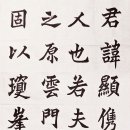 君諱顯儁
人也若夫
之原雲門
固以瓊峯